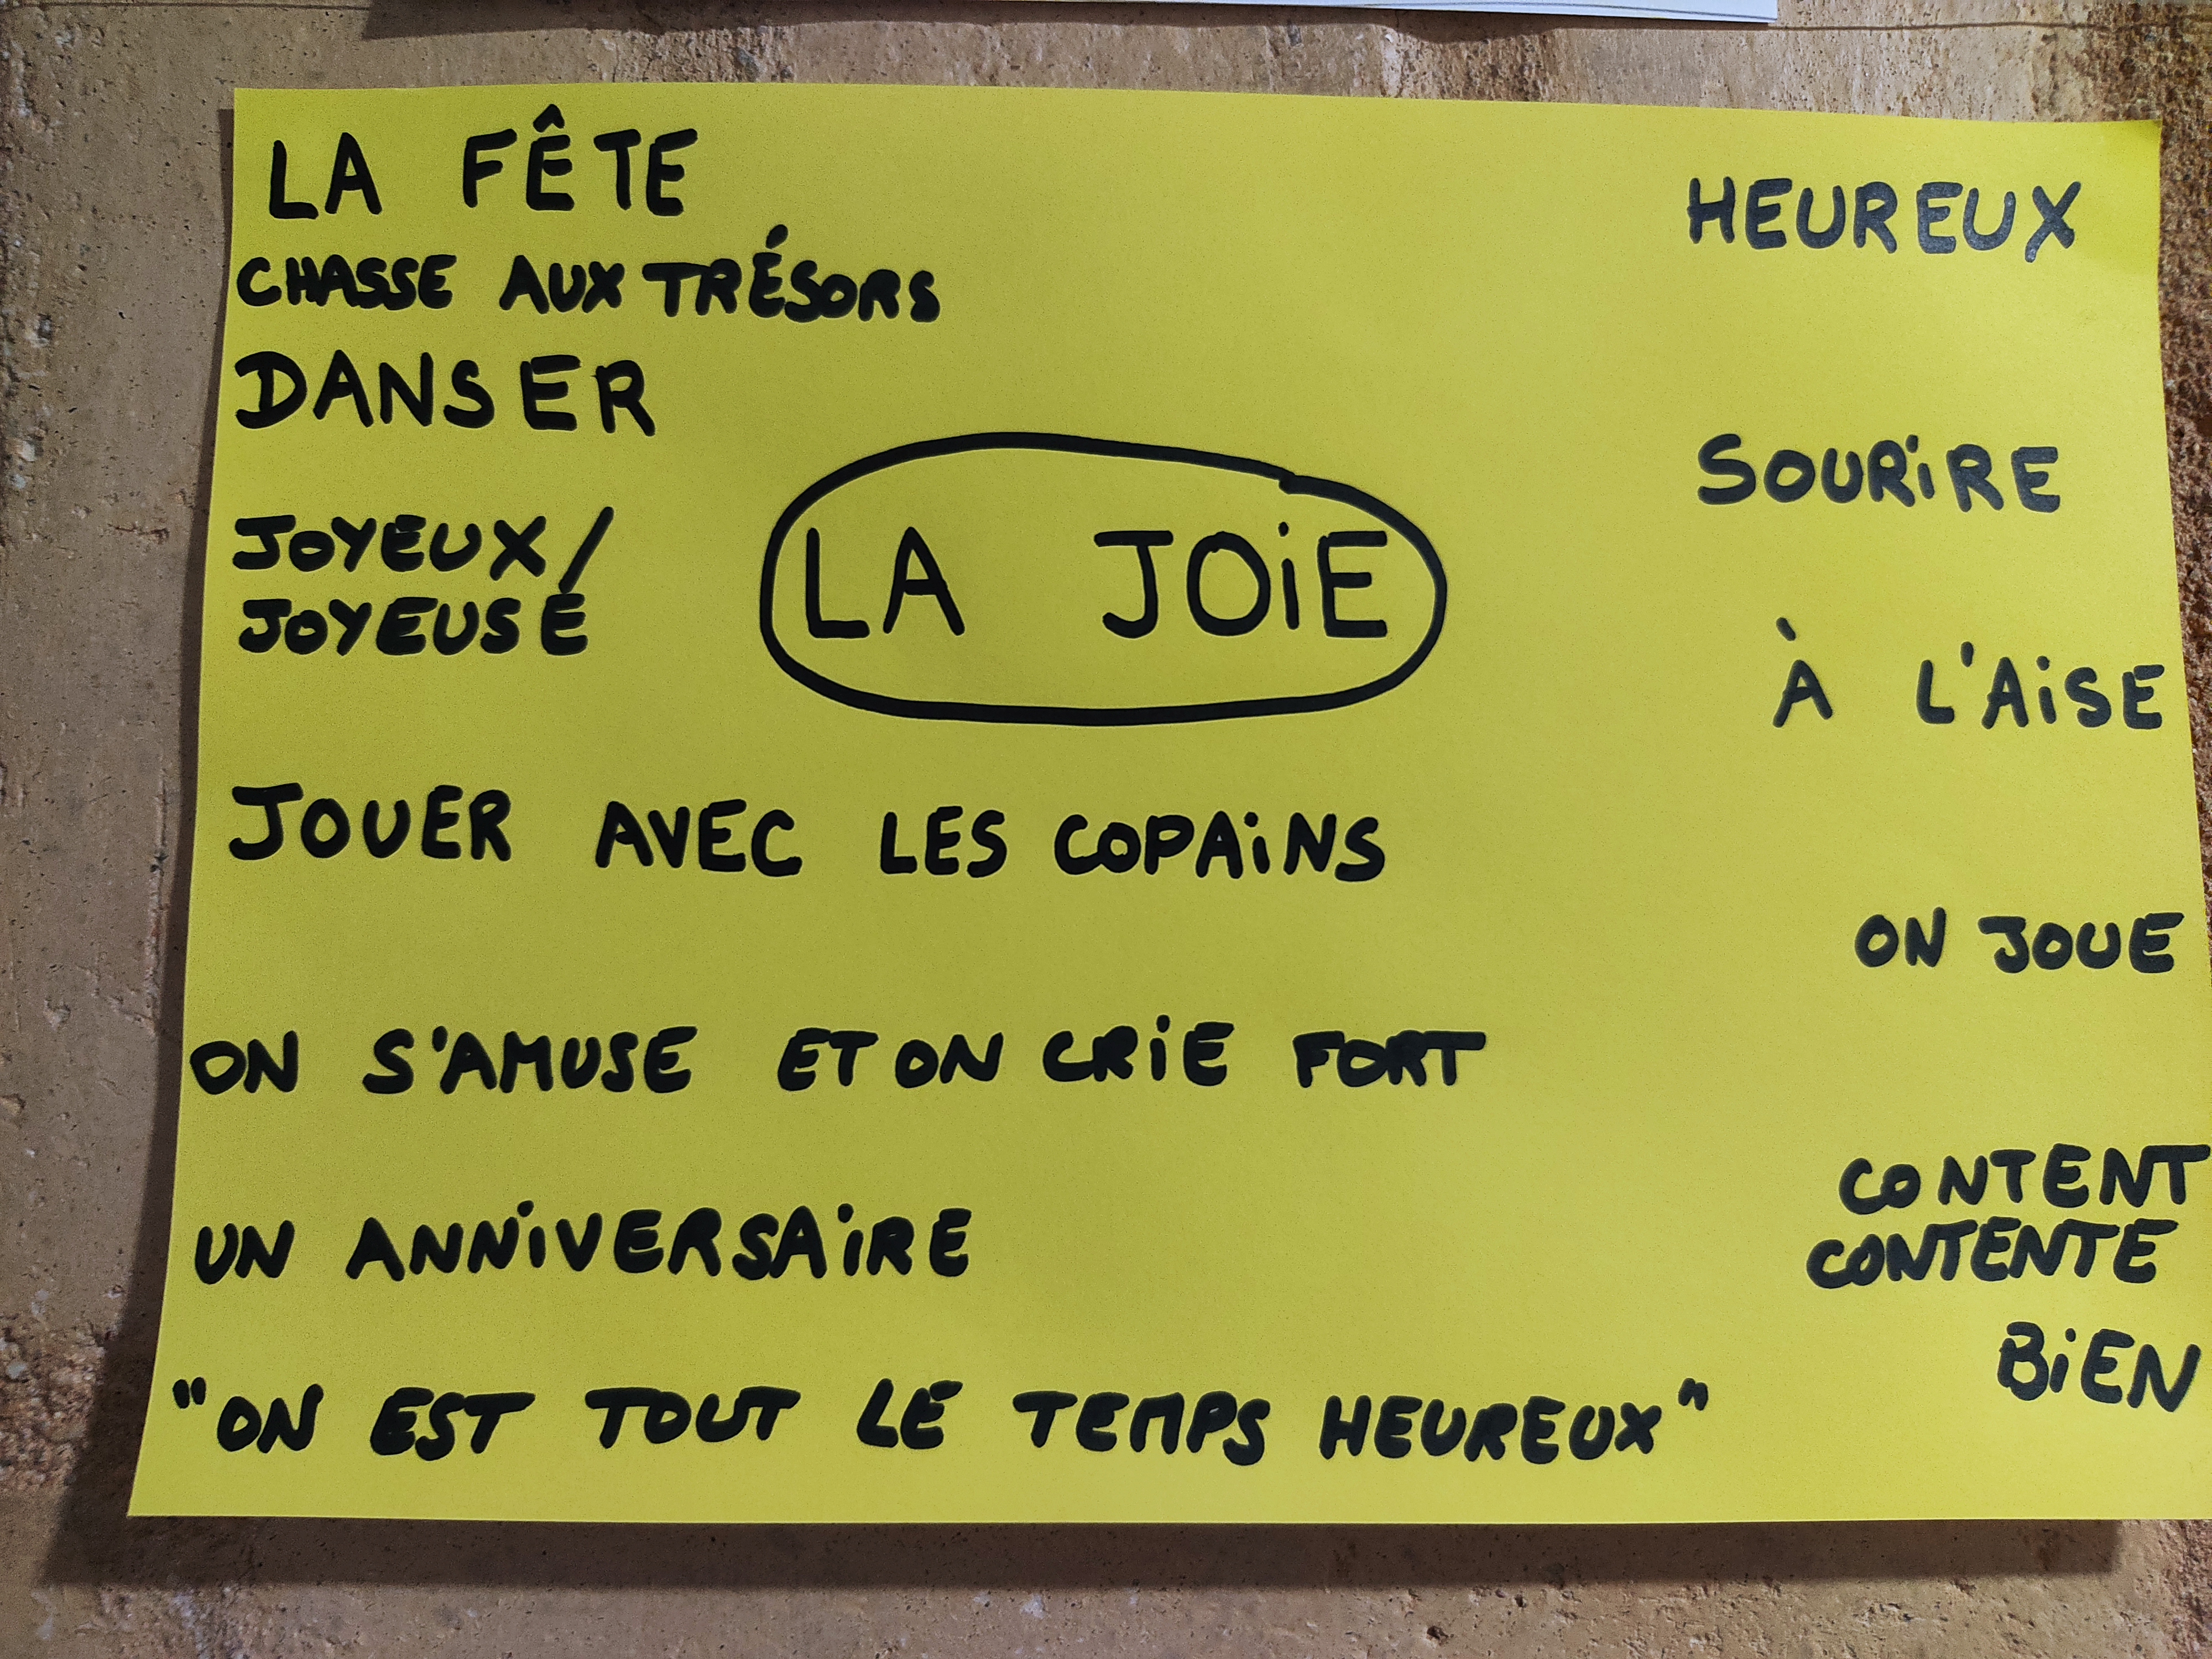 LA FÊTE
CHASSE AUX TRÉSORS
DANSER
JOYEUX/
JOYEUSE
LA JOiE
JOUER AVEC LES COPAiNS
ON S'AMUSE ET ON CRiE FORT
UN ANNiVERSAiRE
"ON EST TOUT LE TEMPS HEUREUX"
HEUREUX
SOURiRE
À L'AiSE
ON JOUE
CONTENT
CONTENTE
BiEN